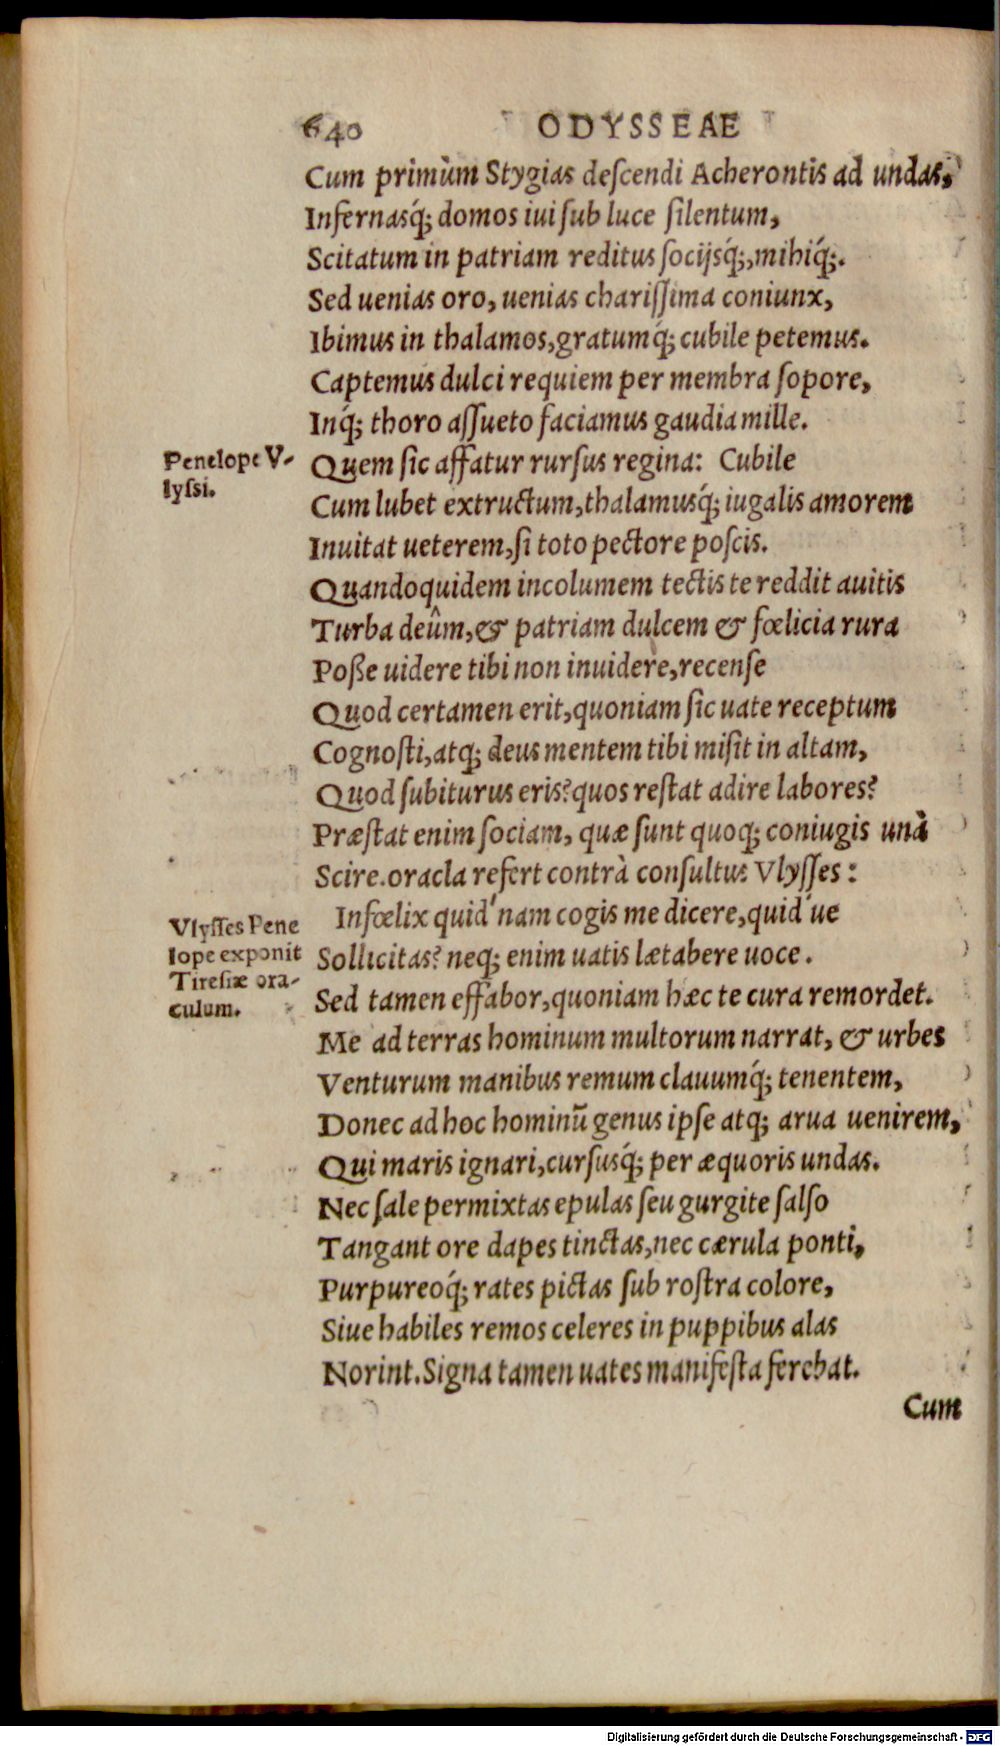 640 ODYSSEAE
Cum primùm Stygias descendi Acherontis ad undas,
Infernasq́; domos iui sub luce silentum,
Scitatum in patriam reditus socijsq́;, mihiq́;.
Sed uenias oro, uenias charissima coniunx,
Ibimus in thalamos, gratumq́; cubile petemus.
Captemus dulci requiem per membra sopore,
Inq́; thoro assueto faciamus gaudia mille.
Penelope V-
lyssi.
Quem sic affatur rursus regina: Cubile
Cum lubet extructum, thalamusq́; iugalis amorem
Inuitat ueterem, si toto pectore poscis.
Quandoquidem incolumem tectis te reddit auitis
Turba deûm, & patriam dulcem & fœlicia rura
Poße uidere tibi non inuidere, recense
Quod certamen erit, quoniam sic uate receptum
Cognosti, atq; deus mentem tibi misit in altam,
Quod subiturus eris? quos restat adire labores?
Præstat enim sociam, quæ sunt quoq; coniugis unà
Scire. oracla refert contrà consultus Vlysses:
Vlysses Pene
lope exponit
Tiresiæ ora-
culum.
Infœlix quid'nam cogis me dicere, quid'ue
Sollicitas? neq; enim uatis lætabere uoce.
Sed tamen effabor, quoniam hæc te cura remordet.
Me ad terras hominum multorum narrat, & urbes
Venturum manibus remum clauumq́; tenentem,
Donec ad hoc hominū genus ipse atq; arua uenirem,
Qui maris ignari, cursusq́; per æquoris undas.
Nec sale permixtas epulas seu gurgite salso
Tangant ore dapes tinctas, nec cærula ponti,
Purpureoq́; rates pictas sub rostra colore,
Siue habiles remos celeres in puppibus alas
Norint. Signa tamen uates manifesta ferebat.
Cum
Digitalisierung gefördert durch die Deutsche Forschungsgemeinschaft - DFG